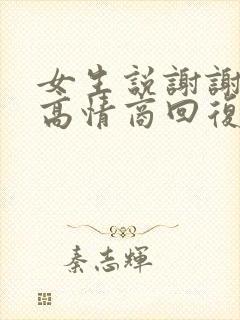 女生説謝謝
高情商回復
秦志輝